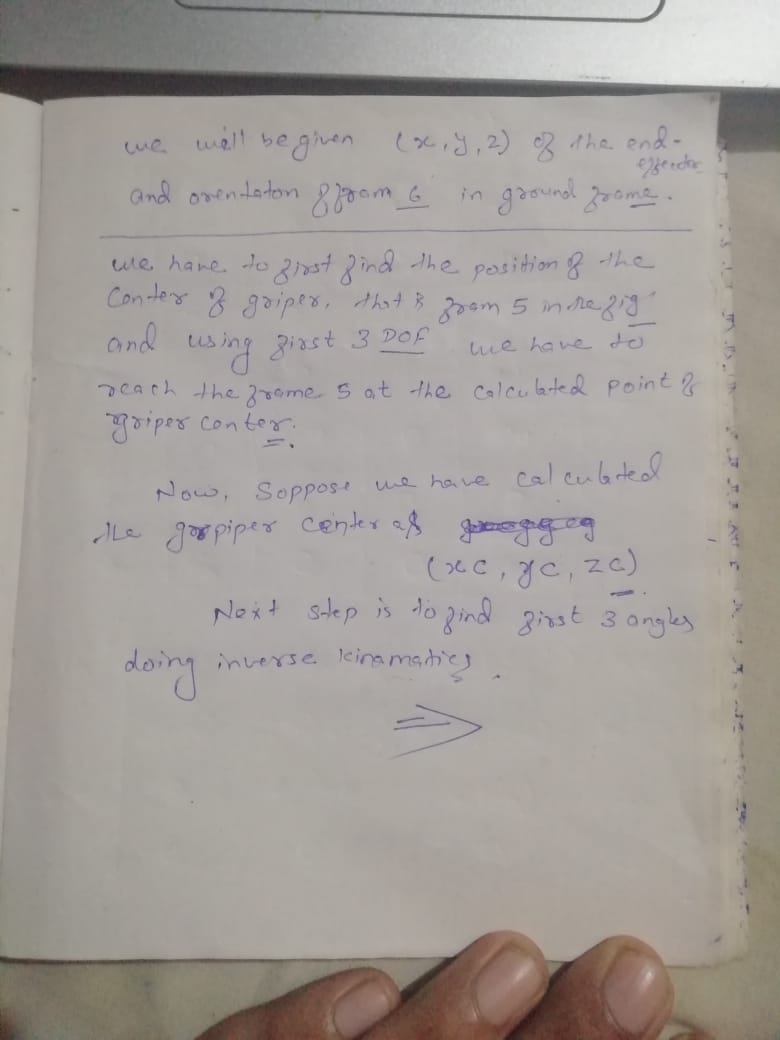 we will be given (x, y, z) of the end-
effector
and orentaton of fram 6 in ground frame.
we have to first find the position of the
Center of griper, that is fram 5 in the fig
and using first 3 DOF we have to
reach the frame 5 at the calculated point of
griper center.
Now, Soppose we have calculated
the gripiper center as
(xc, yc, zc)
Next step is to find first 3 angles
doing inverse kinamatics.